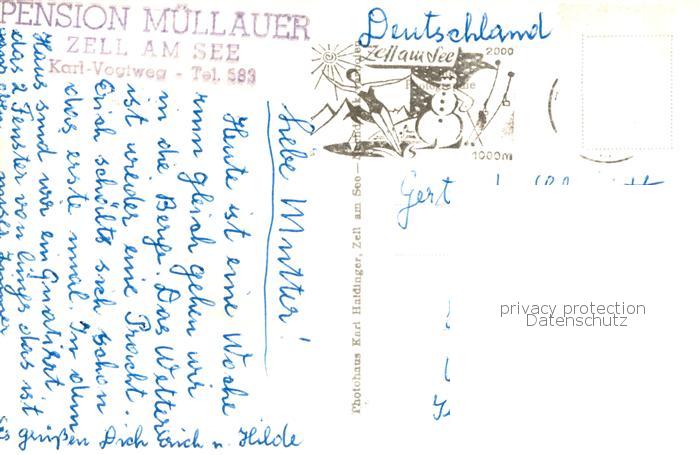 PENSION MÜLLAUER
ZELL AM SEE
Karl-Vogtweg - Tel. 583
Deutschland
Zell am See
2000
1000m
Liebe Mutter!
Heute ist eine Woche
rum gleich gehen wir
in die Berge. Das Wetter
ist wieder eine Pracht.
Erich schält sich schon
das erste mal. In dem
Haus sind wir einquatirt
das 2 Fenster von lings das ist
unser Zimmer
Es grüßen Dich Erich u. Hilde
Photohaus Karl Haidinger, Zell am See
Gert
privacy protection
Datenschutz